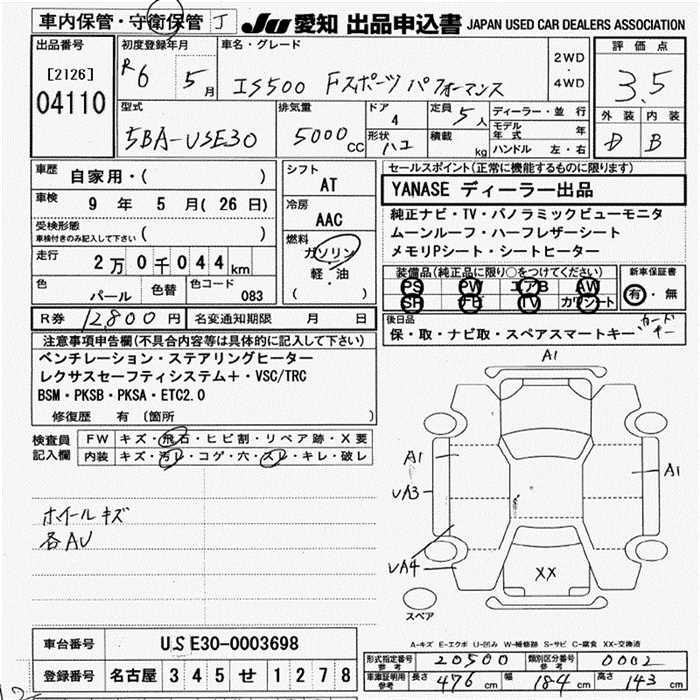 車内保管・守衛保管 J JU 愛知 出品申込書 JAPAN USED CAR DEALERS ASSOCIATION
出品番号 [2126] 04110
初度登録年月 R6 5月
車名・グレード IS500 Fスポーツ パフォーマンス
2WD・4WD
評価点 3.5
外装 内装
D B
型式 5BA-USE30
排気量 5000 CC
ドア 4
形状 ハコ
定員 5人
積載 kg
ディーラー・並行
モデル年式 年
ハンドル 左・右
車歴 自家用・( )
車検 9年 5月(26日)
受検形態
車検付きのみ記入して下さい ( )
走行 2万0千044km
色 パール 色替 色コード 083
シフト AT
冷房 AAC
燃料 ガソリン
軽・油
( )
セールスポイント(正常に機能するものに限ります)
YANASE ディーラー出品
純正ナビ・TV・パノラミックビューモニタ
ムーンルーフ・ハーフレザーシート
メモリPシート・シートヒーター
装備品(純正品に限り○をつけてください)
PS PW エアB AW
SR ナビ TV カワシート
新車保証書
有・無
R券 12,800円 名変通知期限 月 日
後日品
保・取・ナビ取・スペアスマートキー カードキー
注意事項申告欄(不具合内容等は具体的に記入して下さい)
ベンチレーション・ステアリングヒーター
レクサスセーフティシステム+・VSC/TRC
BSM・PKSB・PKSA・ETC2.0
修復歴 有 〔箇所 〕
検査員記入欄
FW キズ・飛石・ヒビ割・リペア跡・X要
内装 キズ・汚レ・コゲ・穴・スレ・キレ・破レ
ホイールキズ
各AU
A1
A1
A1
UA3
UA4
XX
スペア
A-キズ E-エクボ U-凹み W-補修跡 S-サビ C-腐食 XX-交換済
車台番号 USE30-0003698
登録番号 名古屋 345 せ 1278
形式指定番号 参考 20500 類別区分番号 参考 0002
車庫証明用 参考 長さ 476cm 幅 184cm 高さ 143cm